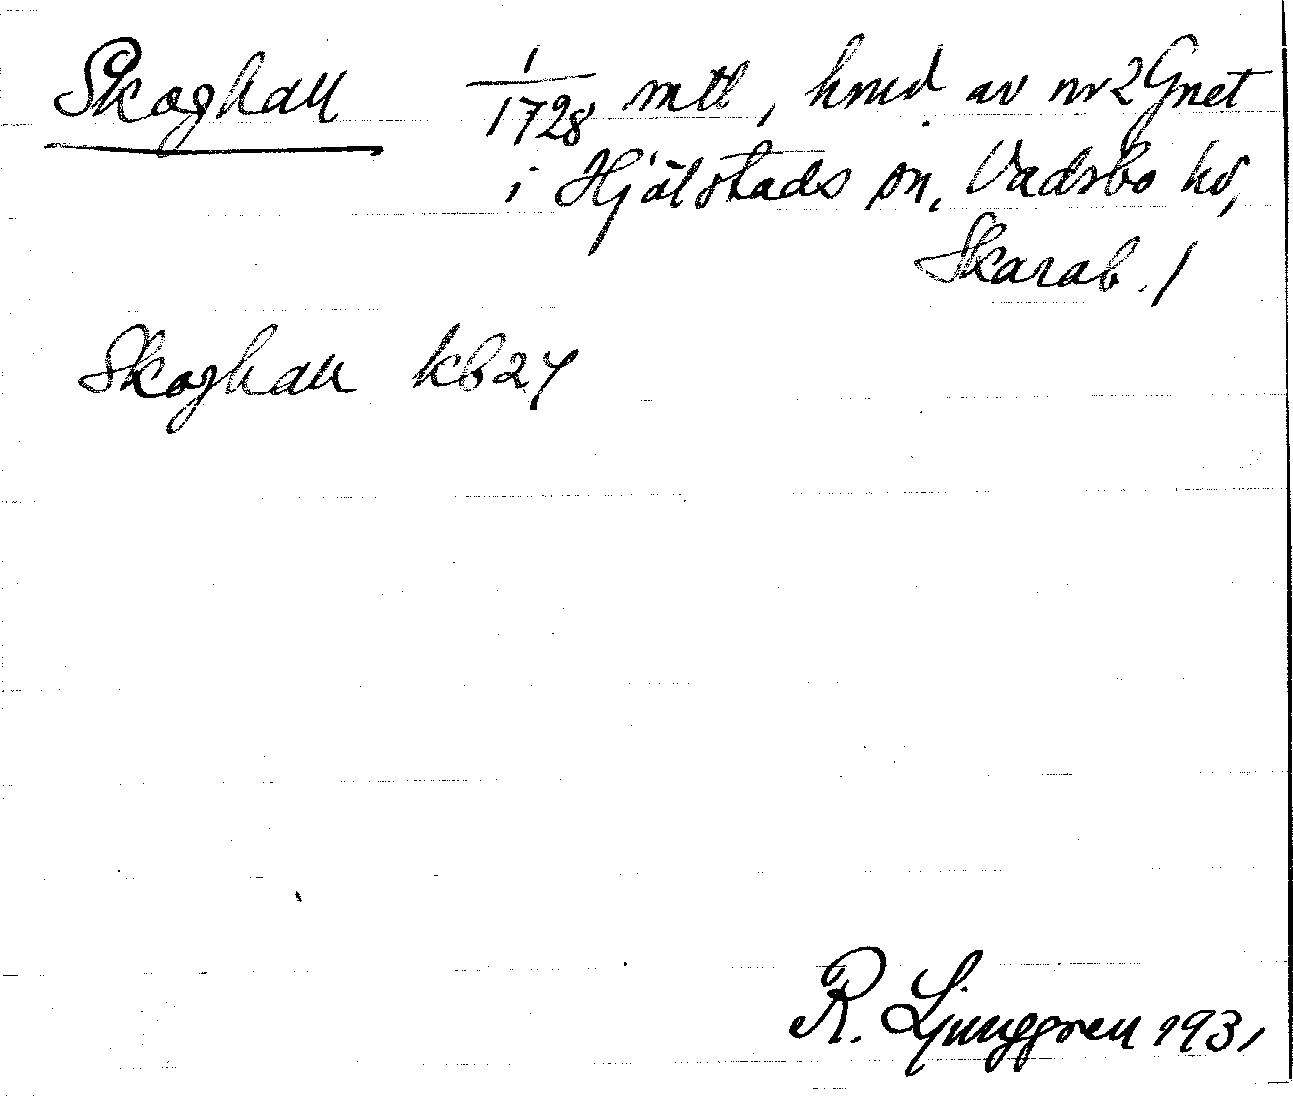 Skoghall 1/1728 mtl, hmd av nr 2 Gnet
i Hjälstads sn, Vadsbo hd,
Skarab. l
Skoghall kb 27
R. Ljunggren 1931